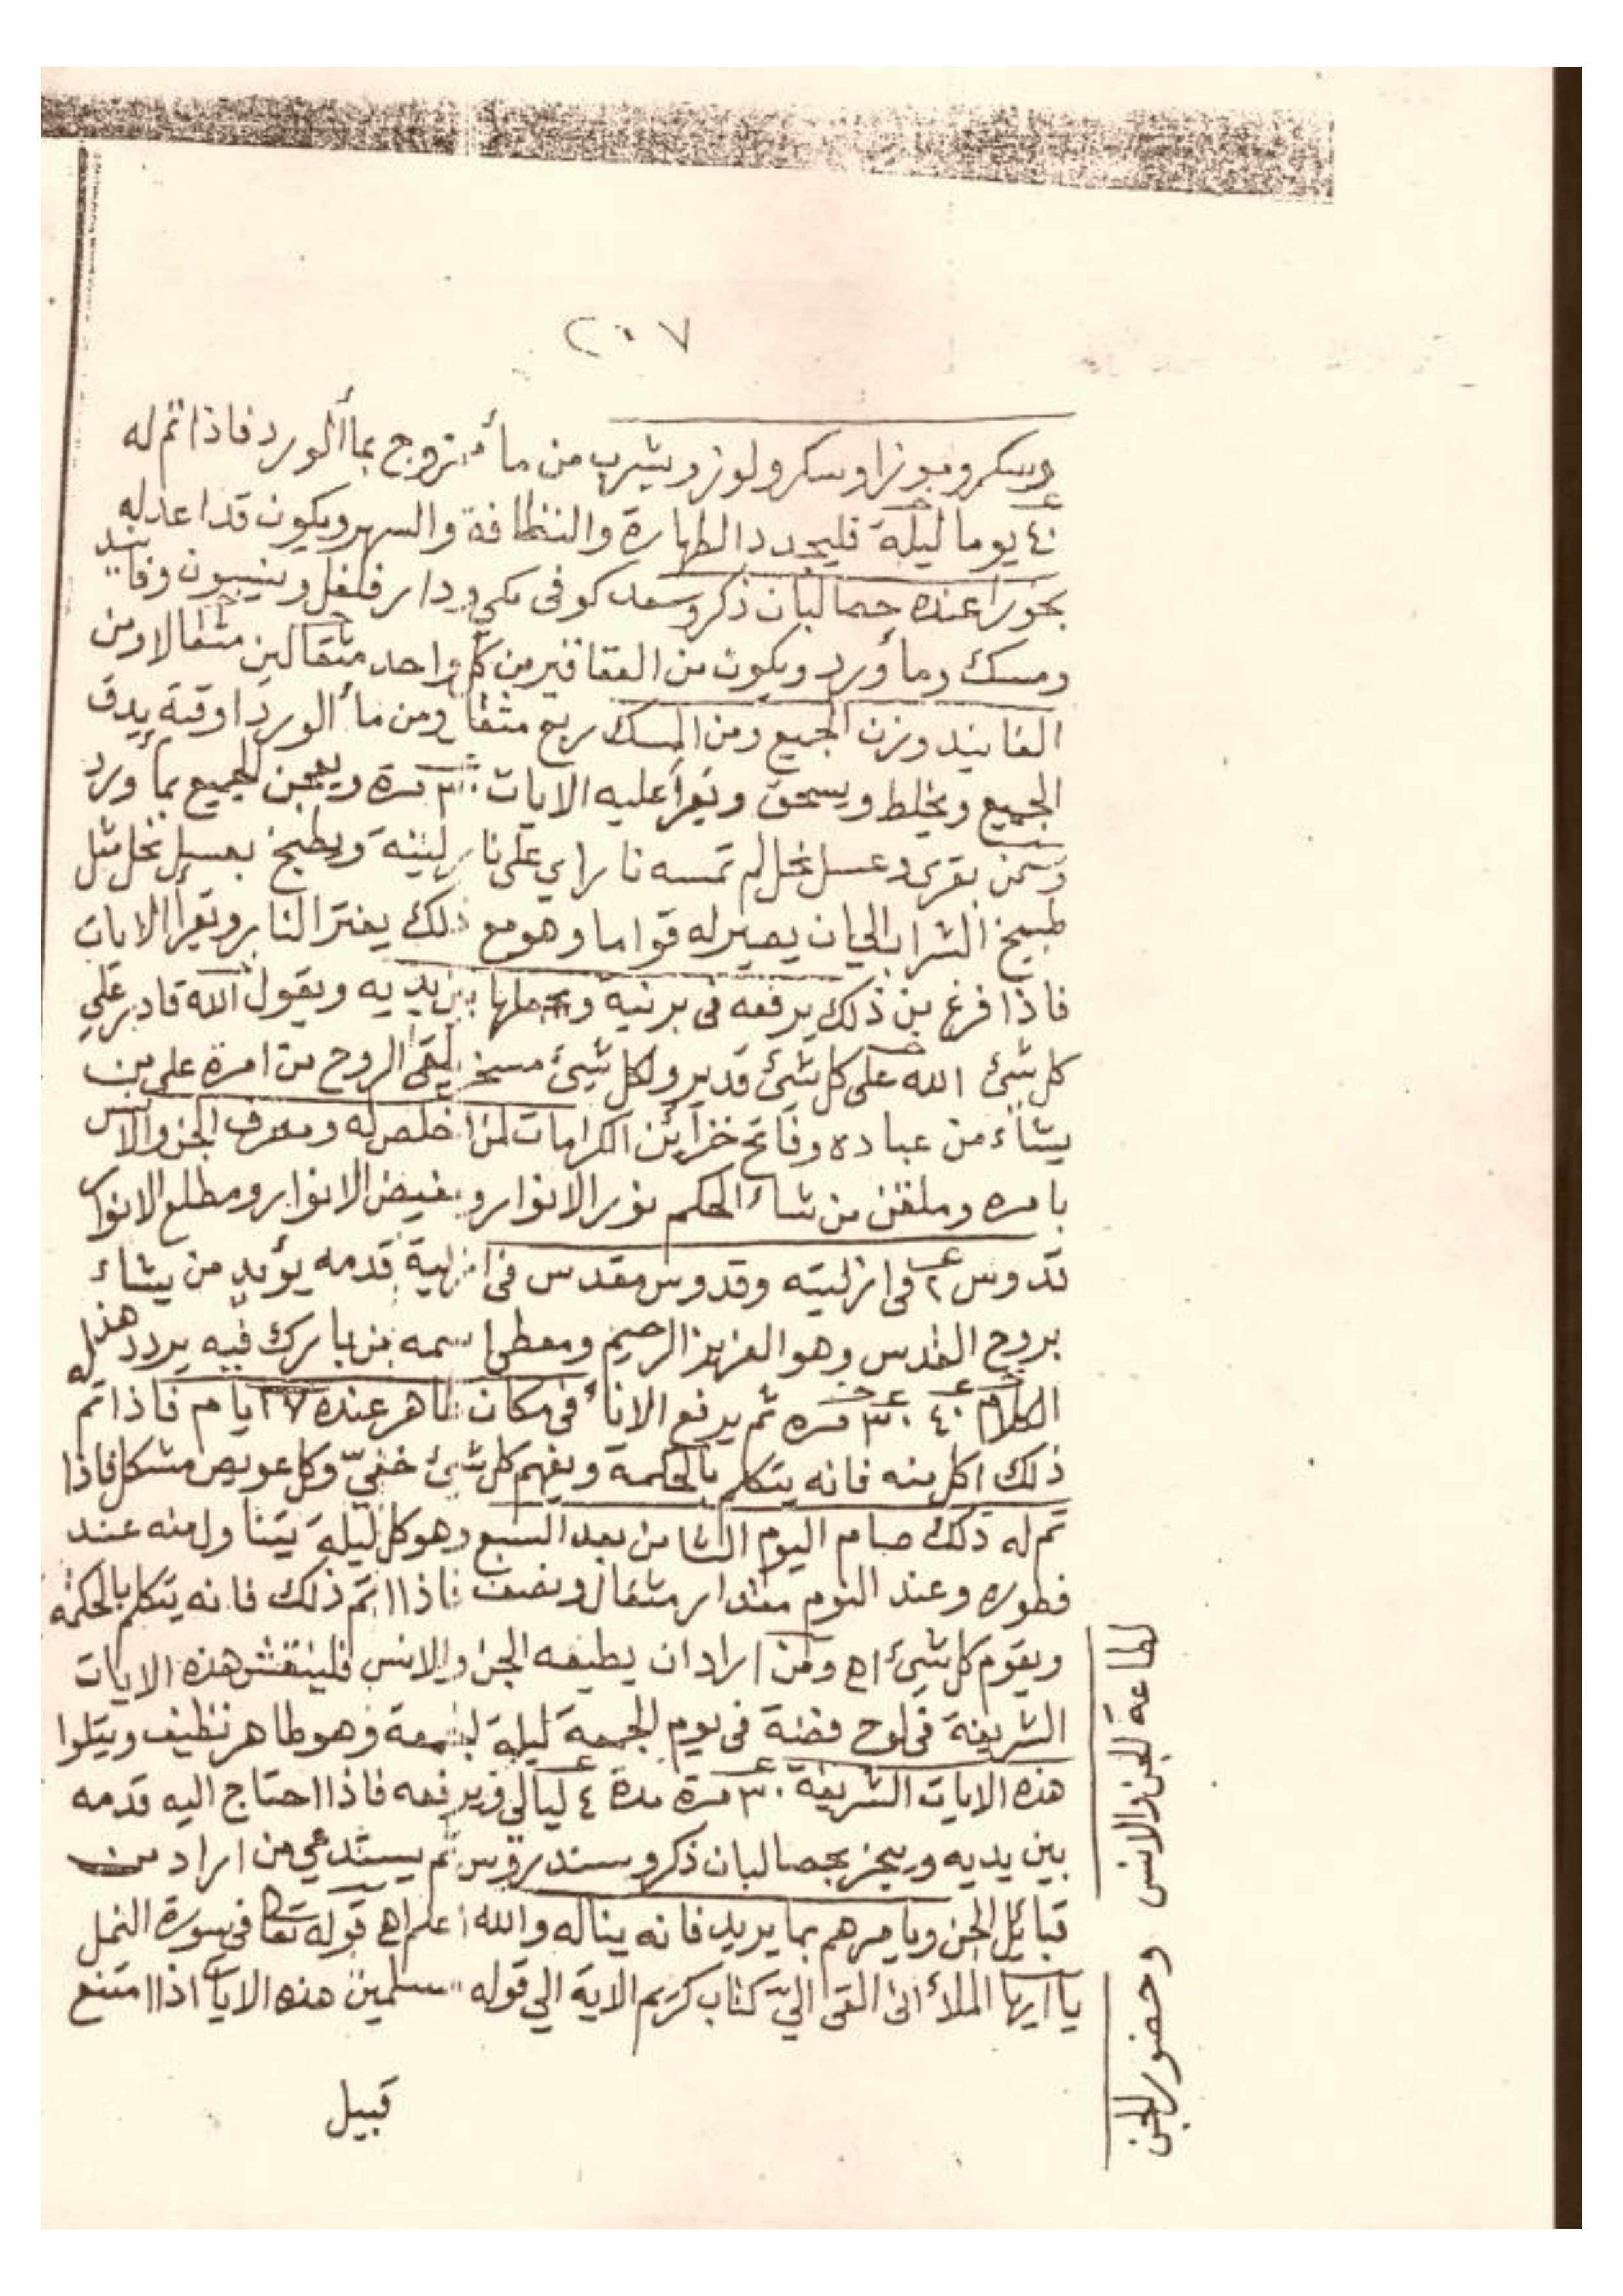 ٢٠٧
وسكر وموزا وسكر ولوز ويشرب من مأ ممتزوج بمأ ألورد فاذا تم له
٤٠ يوما ليلة فليجدد الطهارة والنظافة والسهر ويكون قد اعد له
بخورا عنده حصالبان ذكر وسعد كوفى مكي ودار فلفل وينسون وفانيد
ومسك ومأ ورد ويكون من العقاقير من كل واحد مثقالين مثقالا ومن
الفانيد وزن الجميع ومن المسك ربع مثقا ومن مأ الورد اوقية يدق
الجميع ويخلط ويسحق ويقرأ عليه الايات ٣٠ مرة ويعجن الجميع بمأ ورد
وسمن بقرى وعسل نحل لم تمسه نار اي على نار لينة ويطبخ بعسل نحل مثل
طبيخ الشراب الي ان يصير له قواما وهو مع ذلك يفتر النار ويقرأ الايات
فاذا فرغ من ذلك يرفعه فى برنية ويحملها بين يديه ويقول الله قادر علي
كل شئ الله على كل شئ قدير ولكل شيئ مسخر يلقى الروح من امره على من
يشاء من عباده وفاتح خزائن الكرامات لمن اخلص له ومصرف الجن والانس
بامره وملقن من شاء الحكم نور الانوار ومفيض الانوار ومطلع الانوار
قدوس ٢ فى ازليته وقدوس مقدس فى ازلية قدمه يؤيد من يشاء
بروح القدس وهو العزيز الرحيم ومعطى اسمه من بارك فيه يردد هذا
الكلام ٤٠ ٣٠ مره ثم يرفع الانأ فى مكان طاهر عنده ٧ ايام فاذا تم
ذلك اكل منه فانه يتكلم بالحكمة ويفهم كل شئ خفيّ وكل عويص مشكل فاذا
تم له ذلك صام اليوم الثامن بعد السبع وهو كل ليلة يتناول منه عند
فطوره وعند النوم مقدار مثقال ونصف فاذا اتم ذلك فانه يتكلم بالحكمة
ويقوم كل شئ اھ ومن اراد ان يطيعه الجن والانس فلينقش هذه الايات
الشريفة فى لوح فضة فى يوم الجمعة ليلة الجمعة وهو طاهر نظيف ويتلوا
هذه الايات الشريفة ٣٠ مرة مدة ٤ ليالي ويرفعه فاذا احتاج اليه قدمه
بين يديه ويبخر بحصالبان ذكر وسندروس ثم يستدعي من اراد من
قبائل الجن ويامرهم بما يريد فانه يناله والله اعلم اھ قوله تعا فى سورة النمل
يا ايها الملأ انى القى اليّ كتاب كريم الاية الي قوله مسلمين هذه الايات اذا امتنع
قبيل
لطاعة الجن والانس وحضور الجن